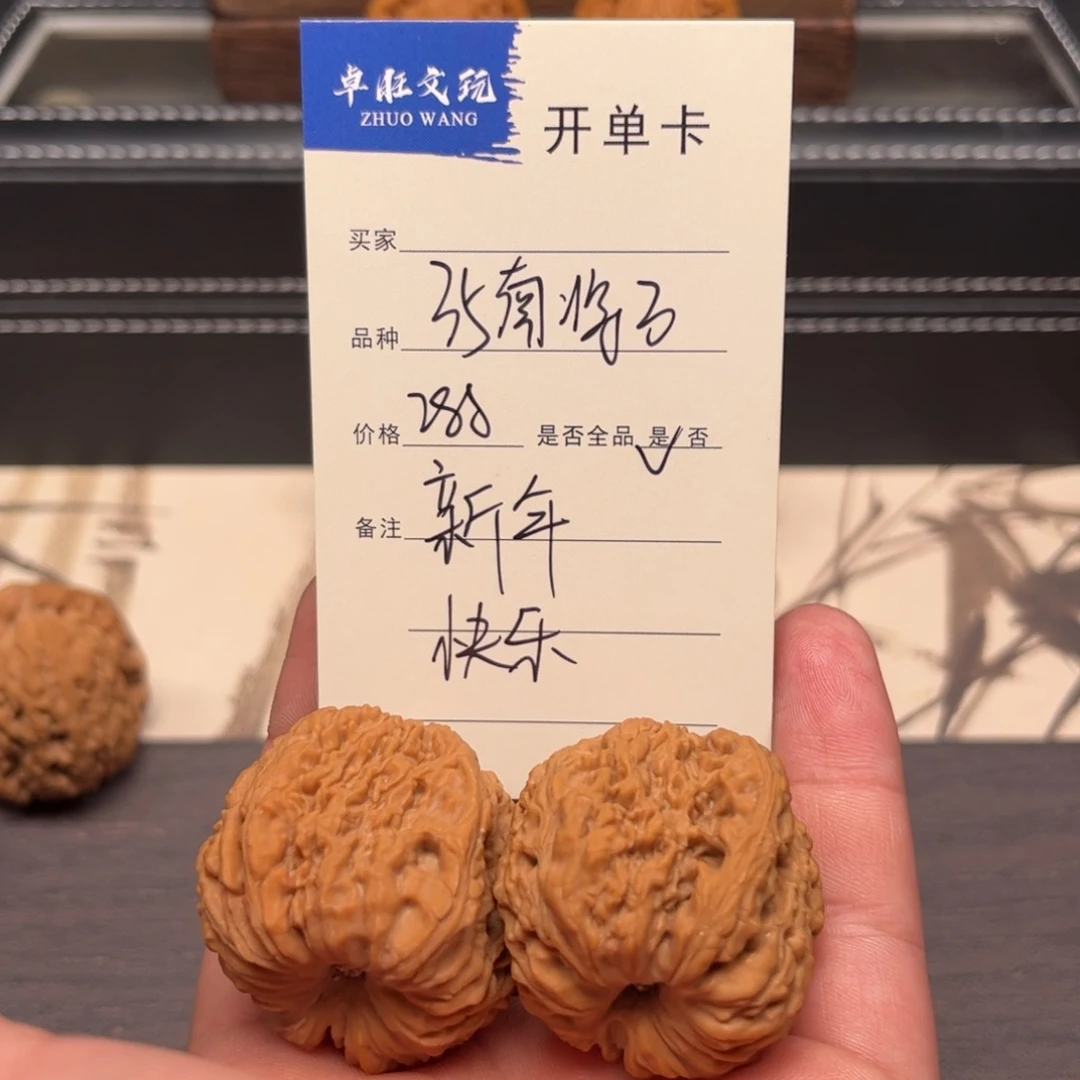 卓旺文玩
ZHUO WANG
开单卡
买家
品种 南将石
价格 288 是否全品 是/否
备注 新年
快乐